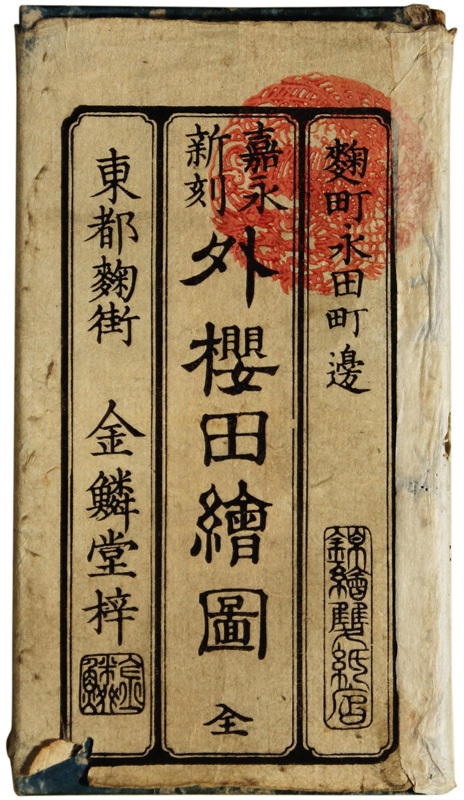 麴町永田町邊
錦繪雙紙店
嘉永
新刻
外櫻田繪圖 全
東都麴街 金鱗堂梓
金鱗